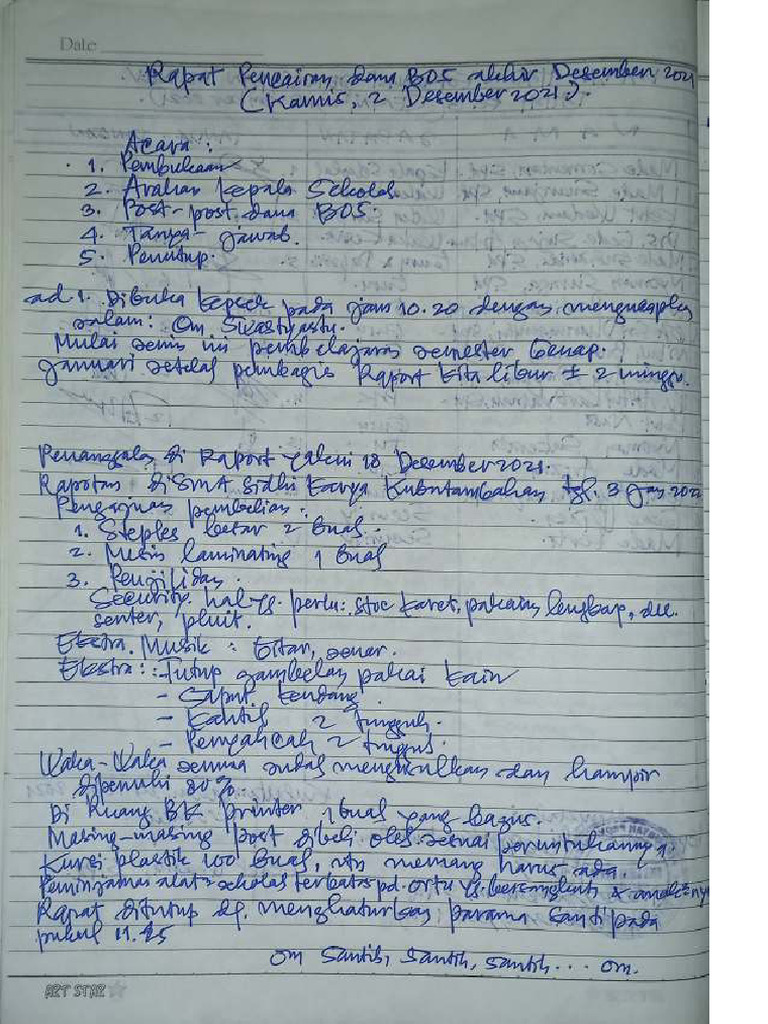 Date
Rapat Pencairan dana BOS akhir Desember 2021
(Kamis, 2 Desember 2021).
Acara :
1. Pembukaan
2. Arahan Kepala Sekolah
3. Post-post dana BOS.
4. Tanya-jawab.
5. Penutup.
ad 1. Dibuka kepsek pada jam 10.20 dengan mengucapkan
salam : Om Swastyastu.
Mulai senin ini pembelajaran semester Genap.
Januari setelah pembagian Raport kita libur ± 2 minggu.
Penanggalan di Raport yakni 18 Desember 2021.
Rapotan di SMA Sidhi Karya Kubutambahan tgl. 3 Jan 2022
Pengajuan pembelian :
1. Steples besar 2 buah.
2. Mesin laminating 1 buah
3. Penjilidan.
Security. hal yg. perlu : karet, pakaian lengkap, dll.
senter, pluit.
Ekstra. Musik : Gitar, senar.
Ekstra : - Tutup gambelan pakai kain
- Saput kendang.
- Kantil 2 tungguh.
- 2 tungguh.
Waka-Waka semua sudah mengusulkan dan hampir
dipenuhi 80%
Di Ruang BK printer 1 buah yang bagus.
Masing-masing post dibeli oleh sesuai peruntukannya.
Kursi plastik 100 buah, memang harus ada.
Peminjaman alat² sekolah terbatas pd. ortu yg. & anak²nya
Rapat ditutup dg. menghaturkan parama Santi pada
pukul 11.25
Om Santih, Santih, Santih... Om.
ART STAR